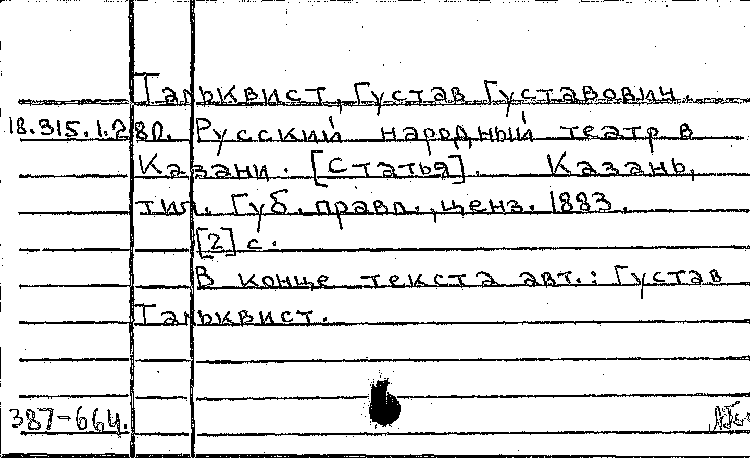 Тальквист, Густав Густавович.
18.315.1.280. Русский народный театр в
Казани. [Статья]. Казань,
тип. Губ. правл., ценз. 1883.
[2] с.
В конце текста авт.: Густав
Тальквист.
387-664.